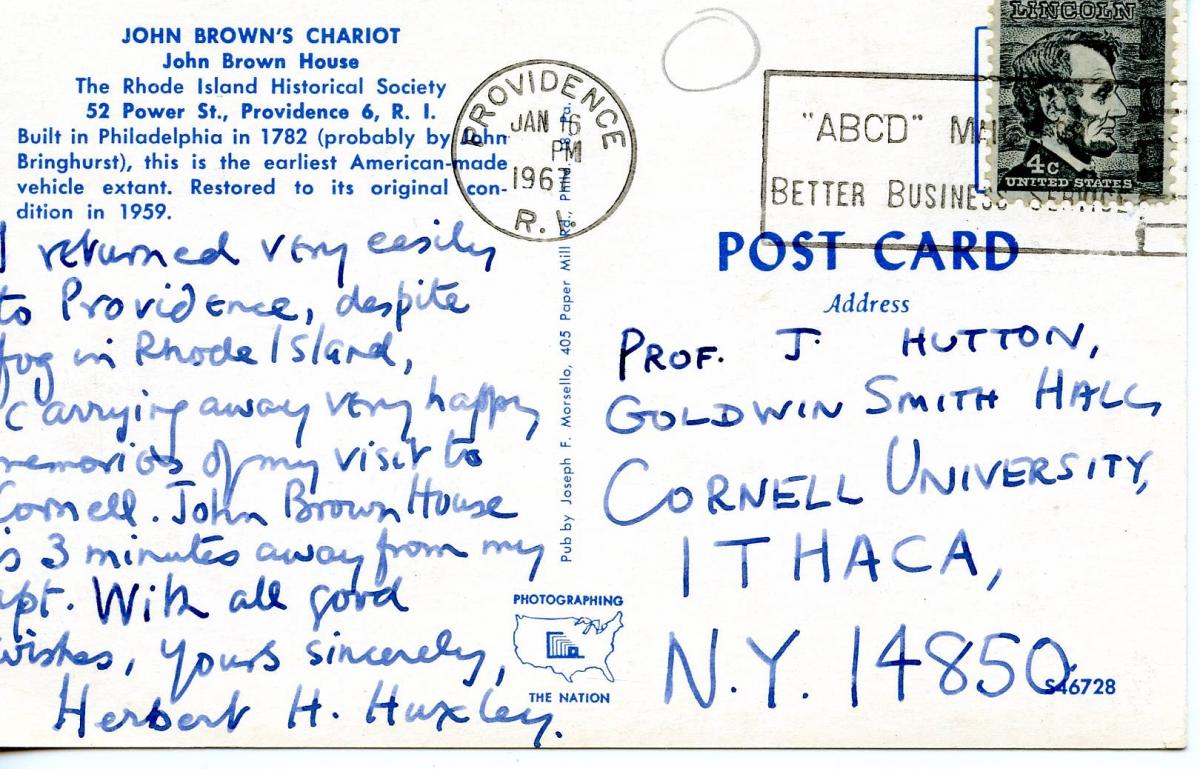 JOHN BROWN'S CHARIOT
John Brown House
The Rhode Island Historical Society
52 Power St., Providence 6, R. I.
Built in Philadelphia in 1782 (probably by John
Bringhurst), this is the earliest American-made
vehicle extant. Restored to its original con-
dition in 1959.
I returned very easily
to Providence, despite
fog in Rhode Island,
carrying away very happy
memories of my visit to
Cornell. John Brown House
is 3 minutes away from my
apt. With all good
wishes, yours sincerely,
Herbert H. Huxley.
Pub by Joseph F. Morsello, 405 Paper Mill Rd., Phila.
PHOTOGRAPHING
THE NATION
PROVIDENCE
JAN 16
PM
1967
R.I.
"ABCD" MA
BETTER BUSINESS SERVICE
LINCOLN
4c
UNITED STATES
POST CARD
Address
PROF. J. HUTTON,
GOLDWIN SMITH HALL,
CORNELL UNIVERSITY,
ITHACA,
N.Y. 14850.
S46728